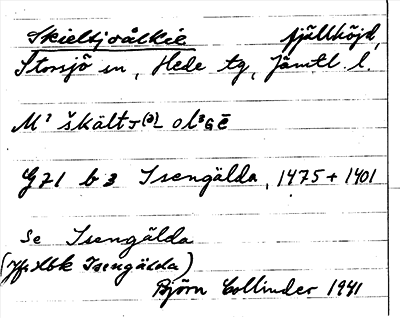 Skieltjoålkie fjällhöjd,
Storsjö sn, Hede tg, Jämtl. l.
M¹
G 71 b 3 Isengälda, 1475 + 1401
Se Isengälda
(Jfr Hbk Isengälda)
Björn Collinder 1941